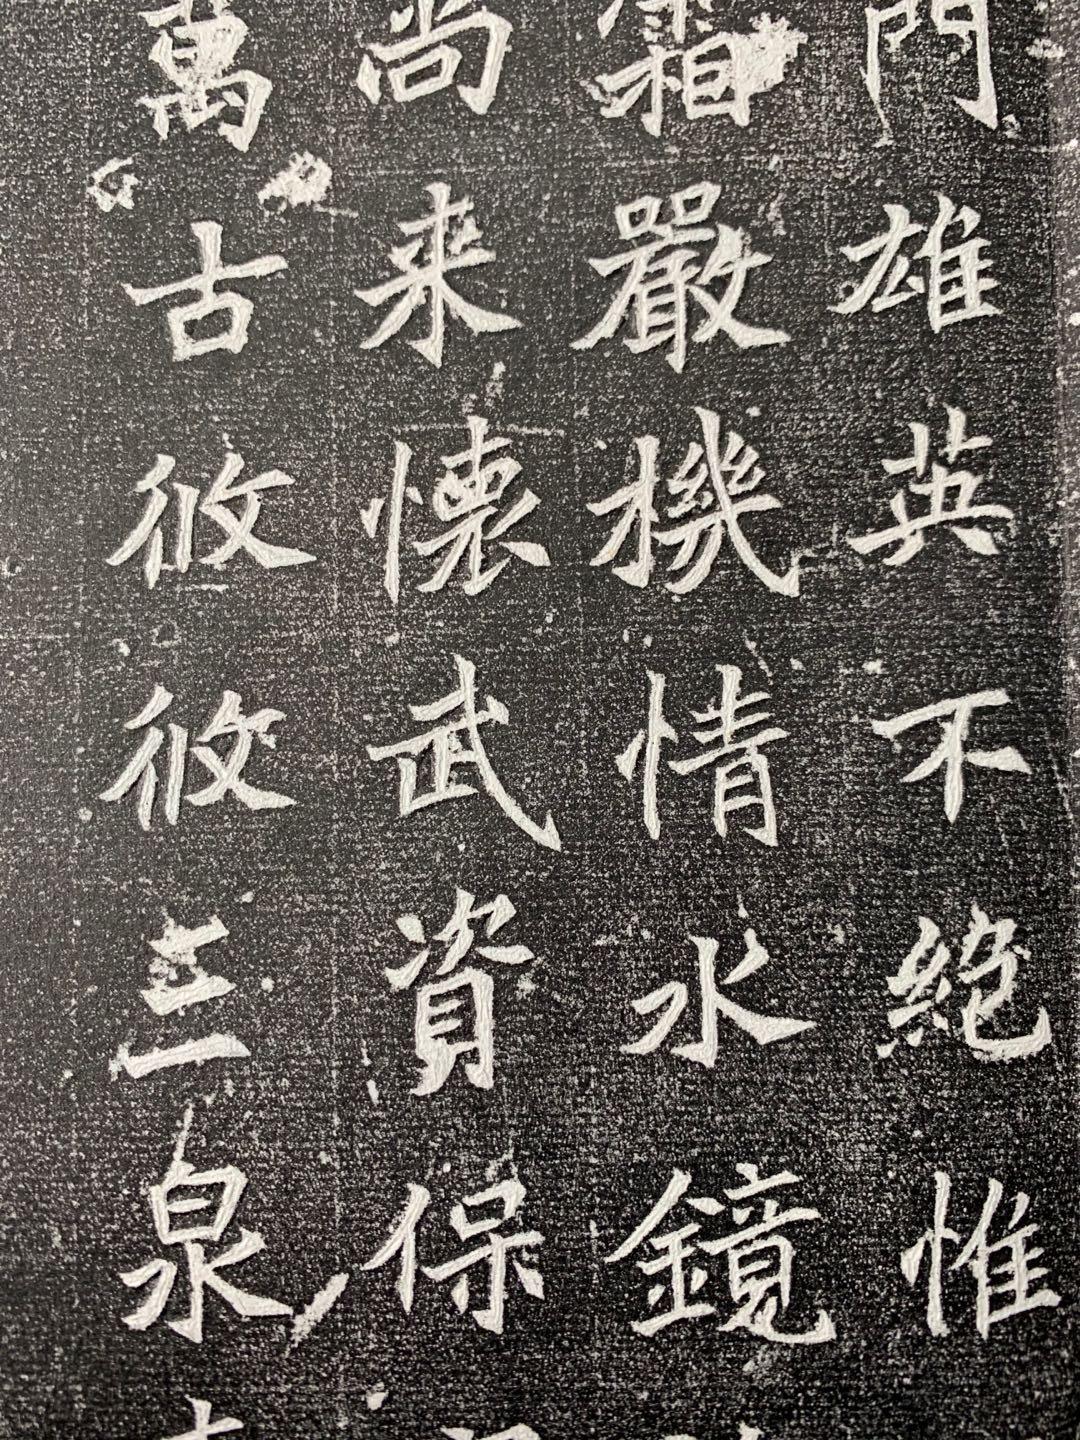 門雄英不絕惟
霜嚴機情水鏡
尚来懷武資保
萬古攸攸三泉